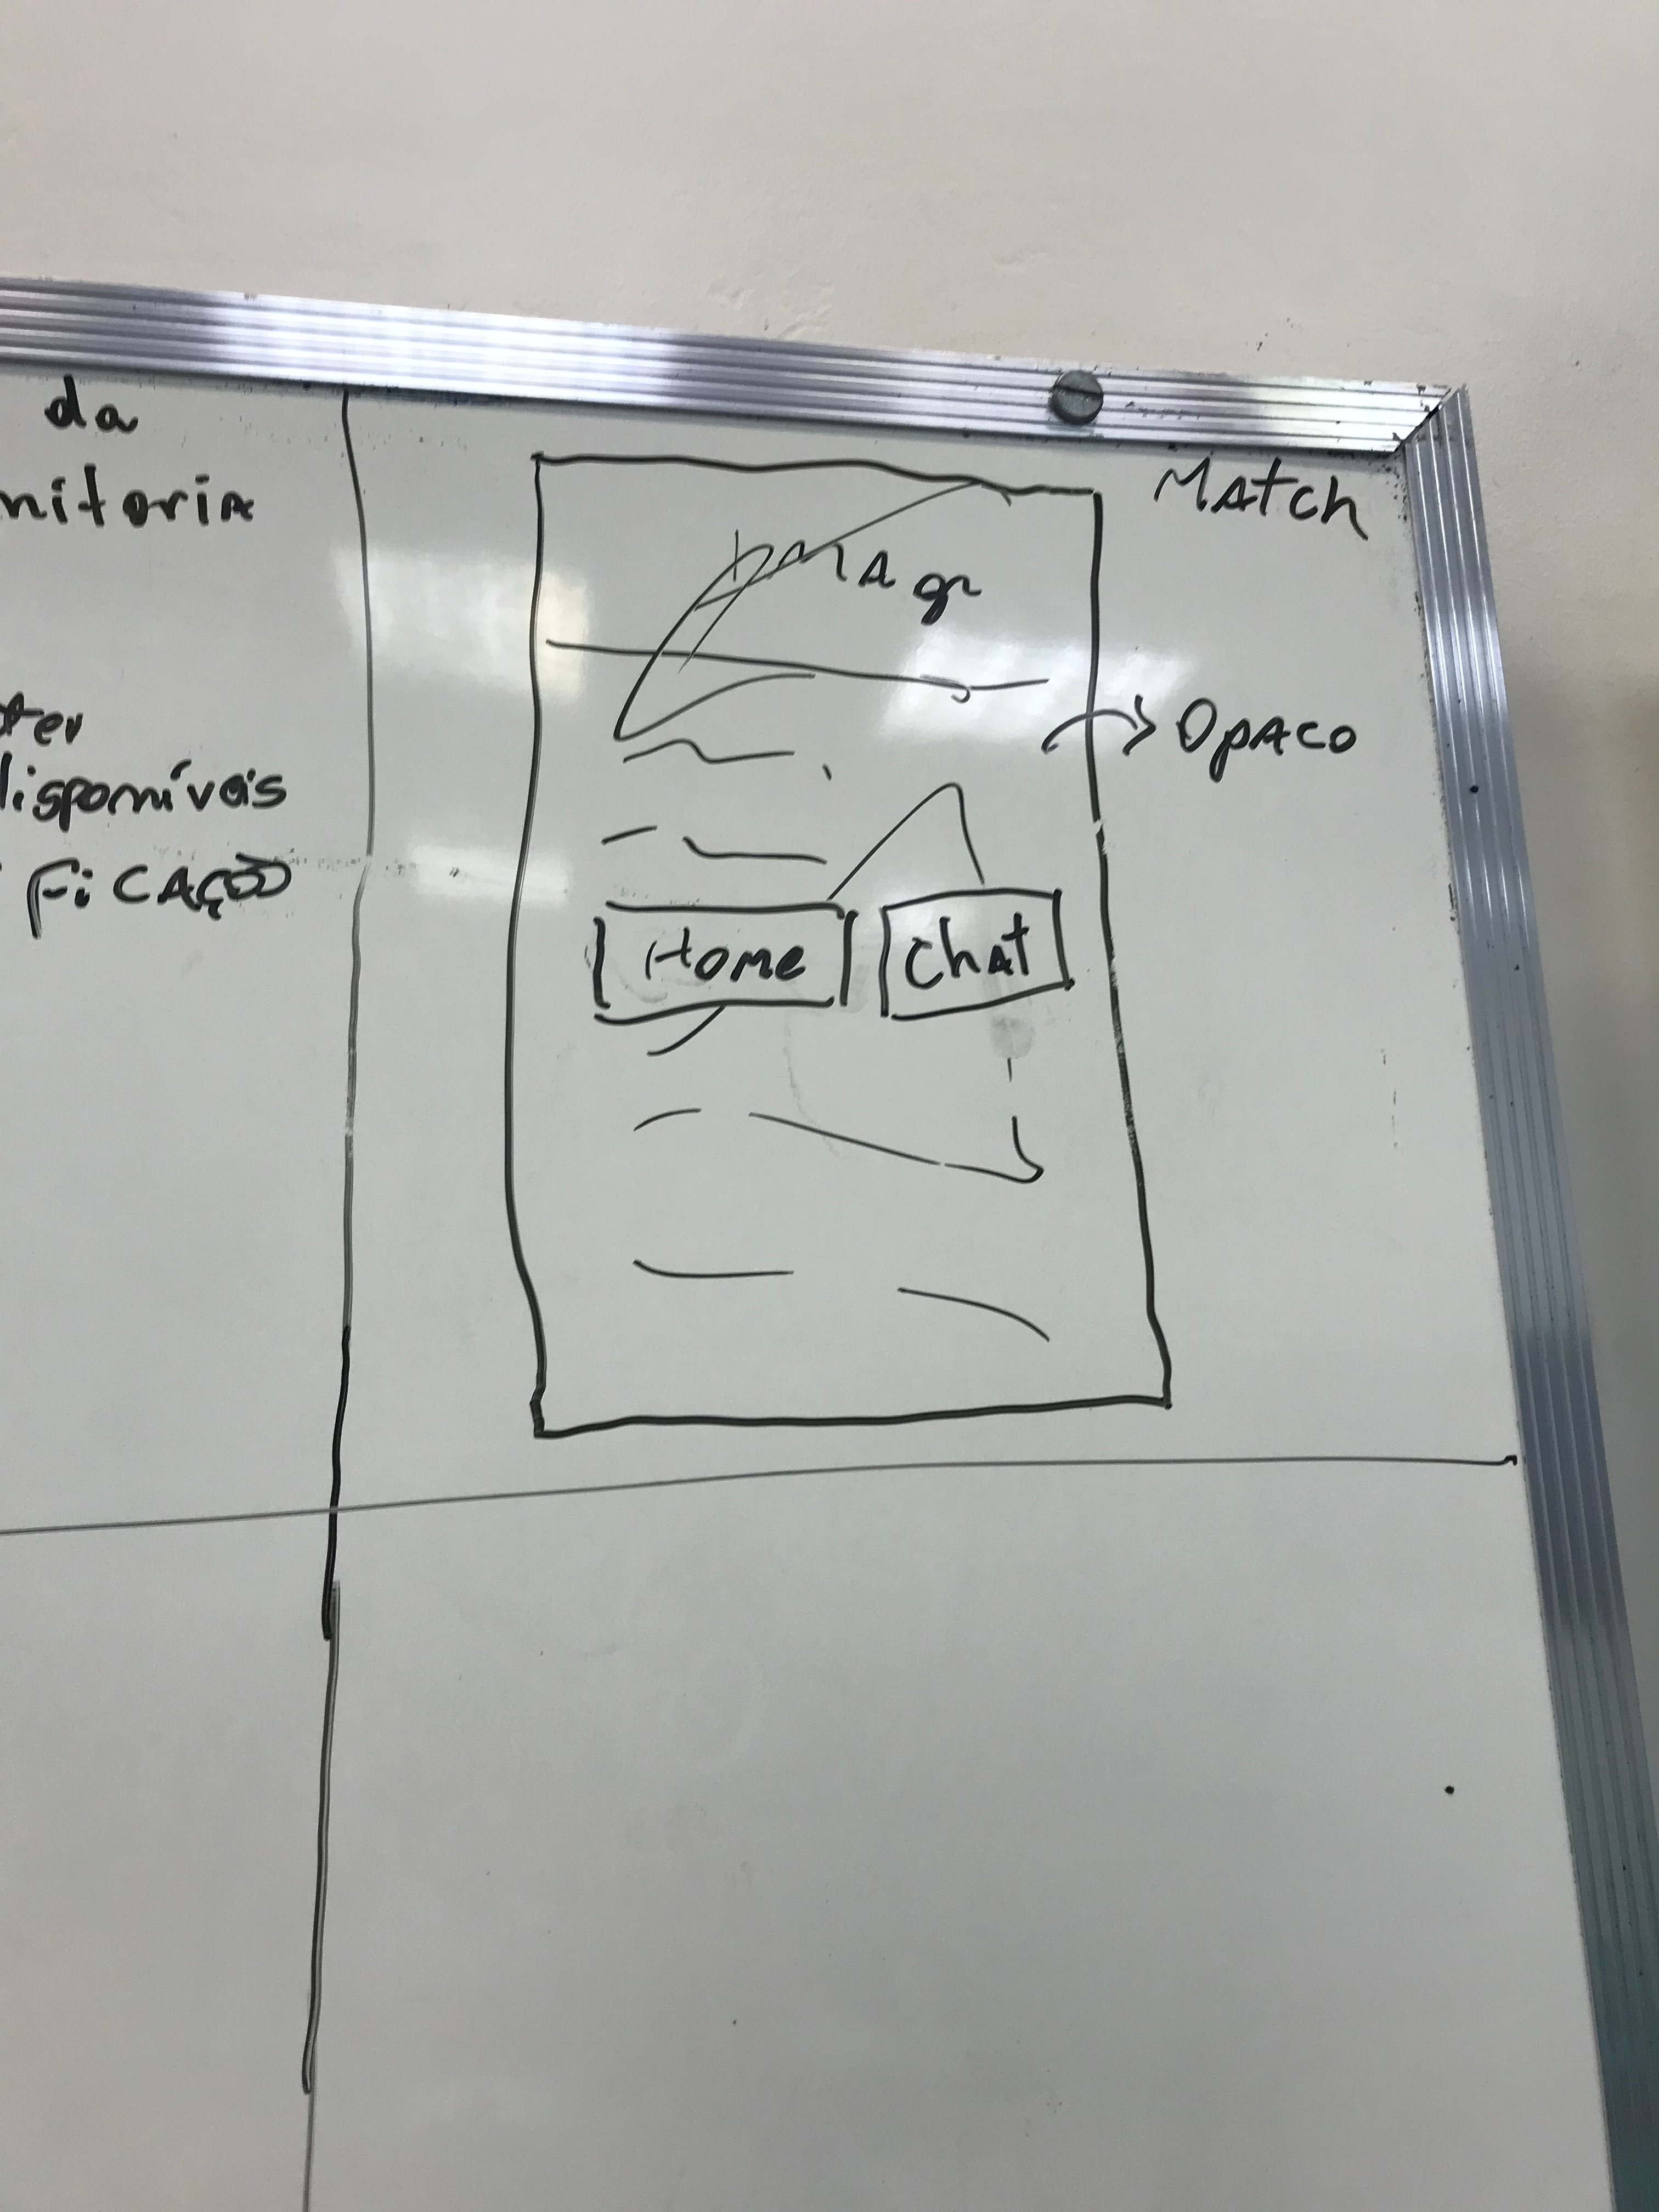 da
nitoria
ter
disponíveis
ficação
Match
Opaco
Home
Chat